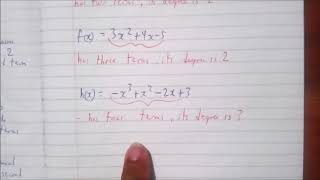 has two terms, its degree is
f(x) = 3x² + 4x - 5
has three terms, its degree is 2
h(x) = -x³ + x² - 2x + 3
- has four terms, its degree is 3
2
term